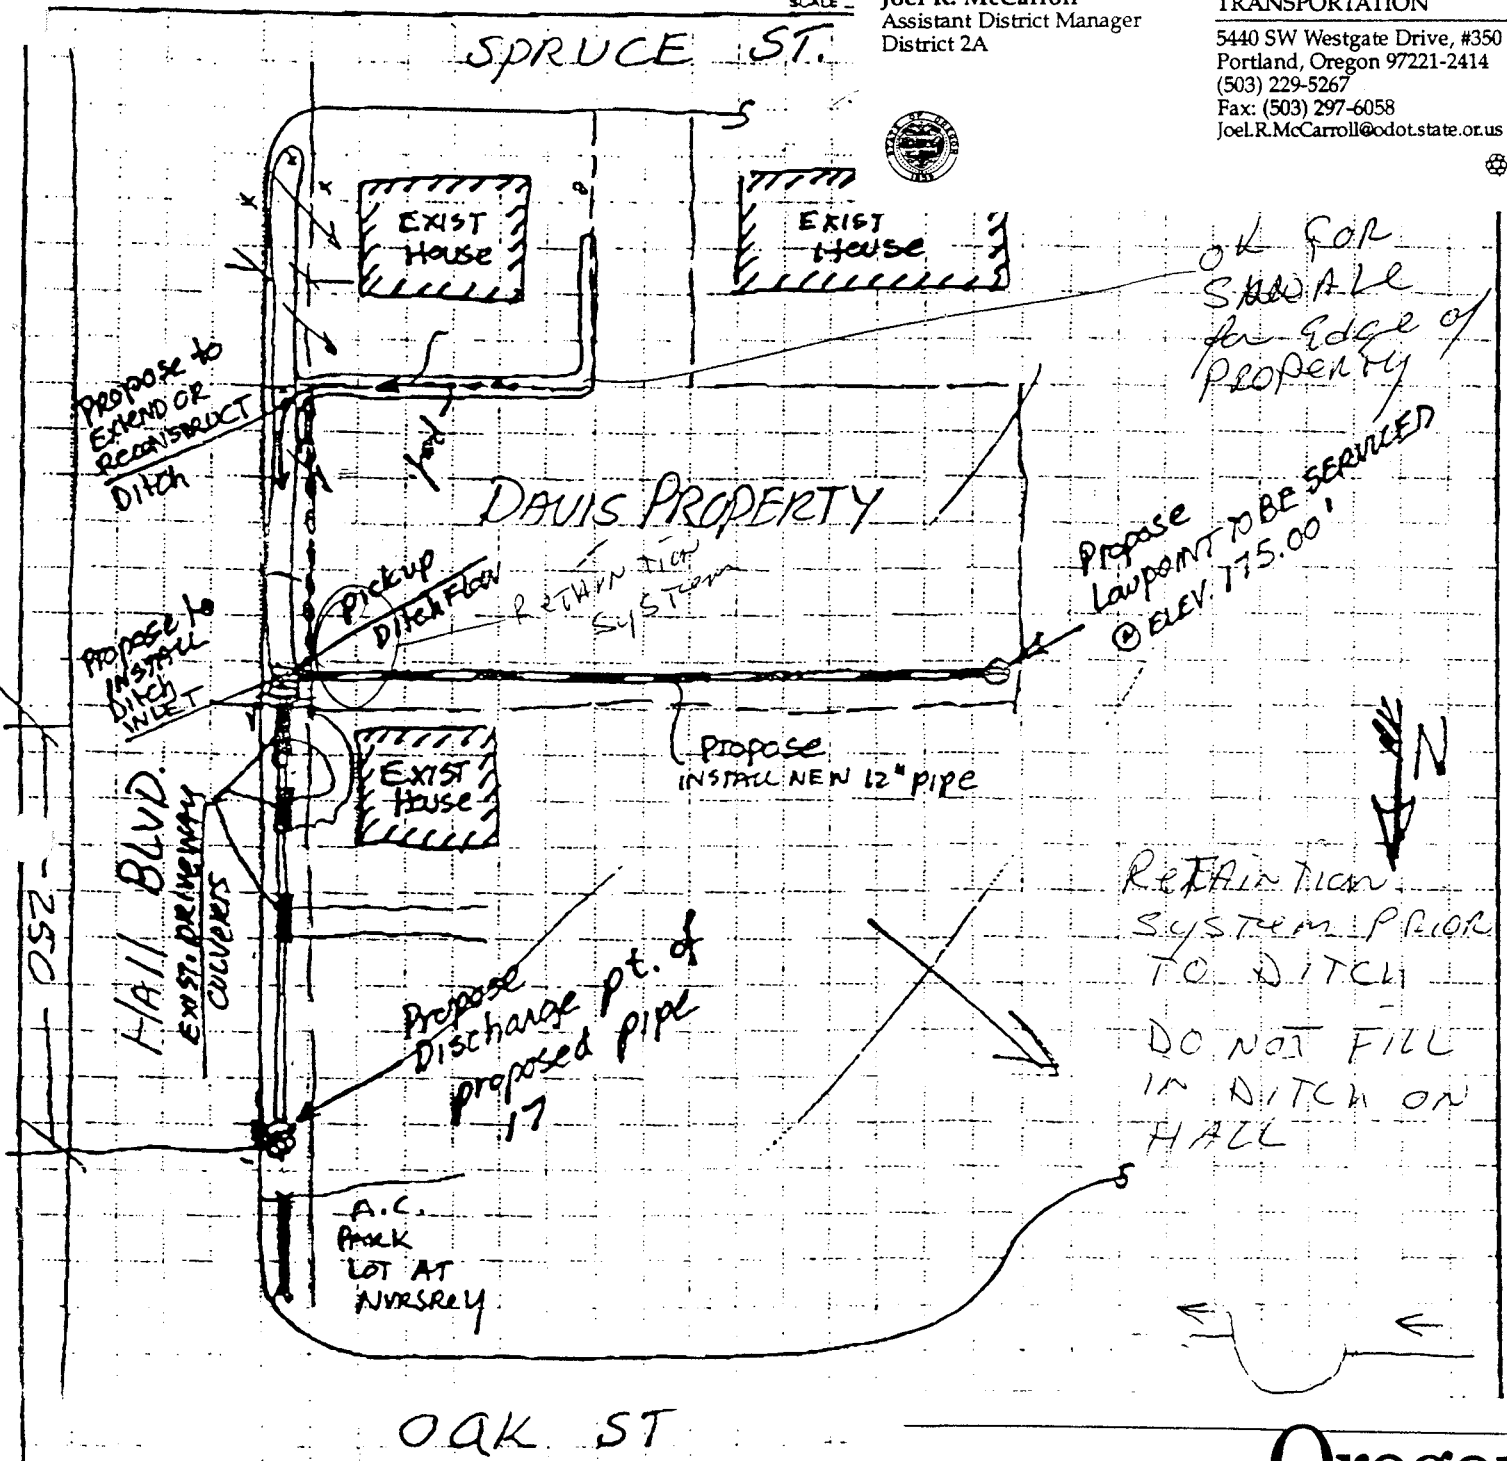 SCALE
Joel R. McCarroll
Assistant District Manager
District 2A
TRANSPORTATION
5440 SW Westgate Drive, #350
Portland, Oregon 97221-2414
(503) 229-5267
Fax: (503) 297-6058
Joel.R.McCarroll@odot.state.or.us
STATE OF OREGON
1859
SPRUCE ST.
EXIST
House
EXIST
House
OK FOR
SWALE
for Edge of
PROPERTY
Propose to
EXTEND OR
RECONSTRUCT
Ditch
DAVIS PROPERTY
Propose
Lowpoint TO BE SERVICED
@ ELEV. 175.00'
pickup
Ditch Flow
RETAINTION
SYSTEM
Propose to
INSTALL
Ditch
INLET
EXIST
House
propose
INSTALL NEW 12" pipe
N
HAll BLVD.
EXIST. DRIVEWAY
CULVERTS
250
Propose
Discharge pt. of
proposed pipe
17
RETAINTION
SYSTEM PRIOR
TO DITCH
DO NOT FILL
IN DITCH ON
HALL
A.C.
PARK
LOT AT
NURSREY
OAK ST
Oregon